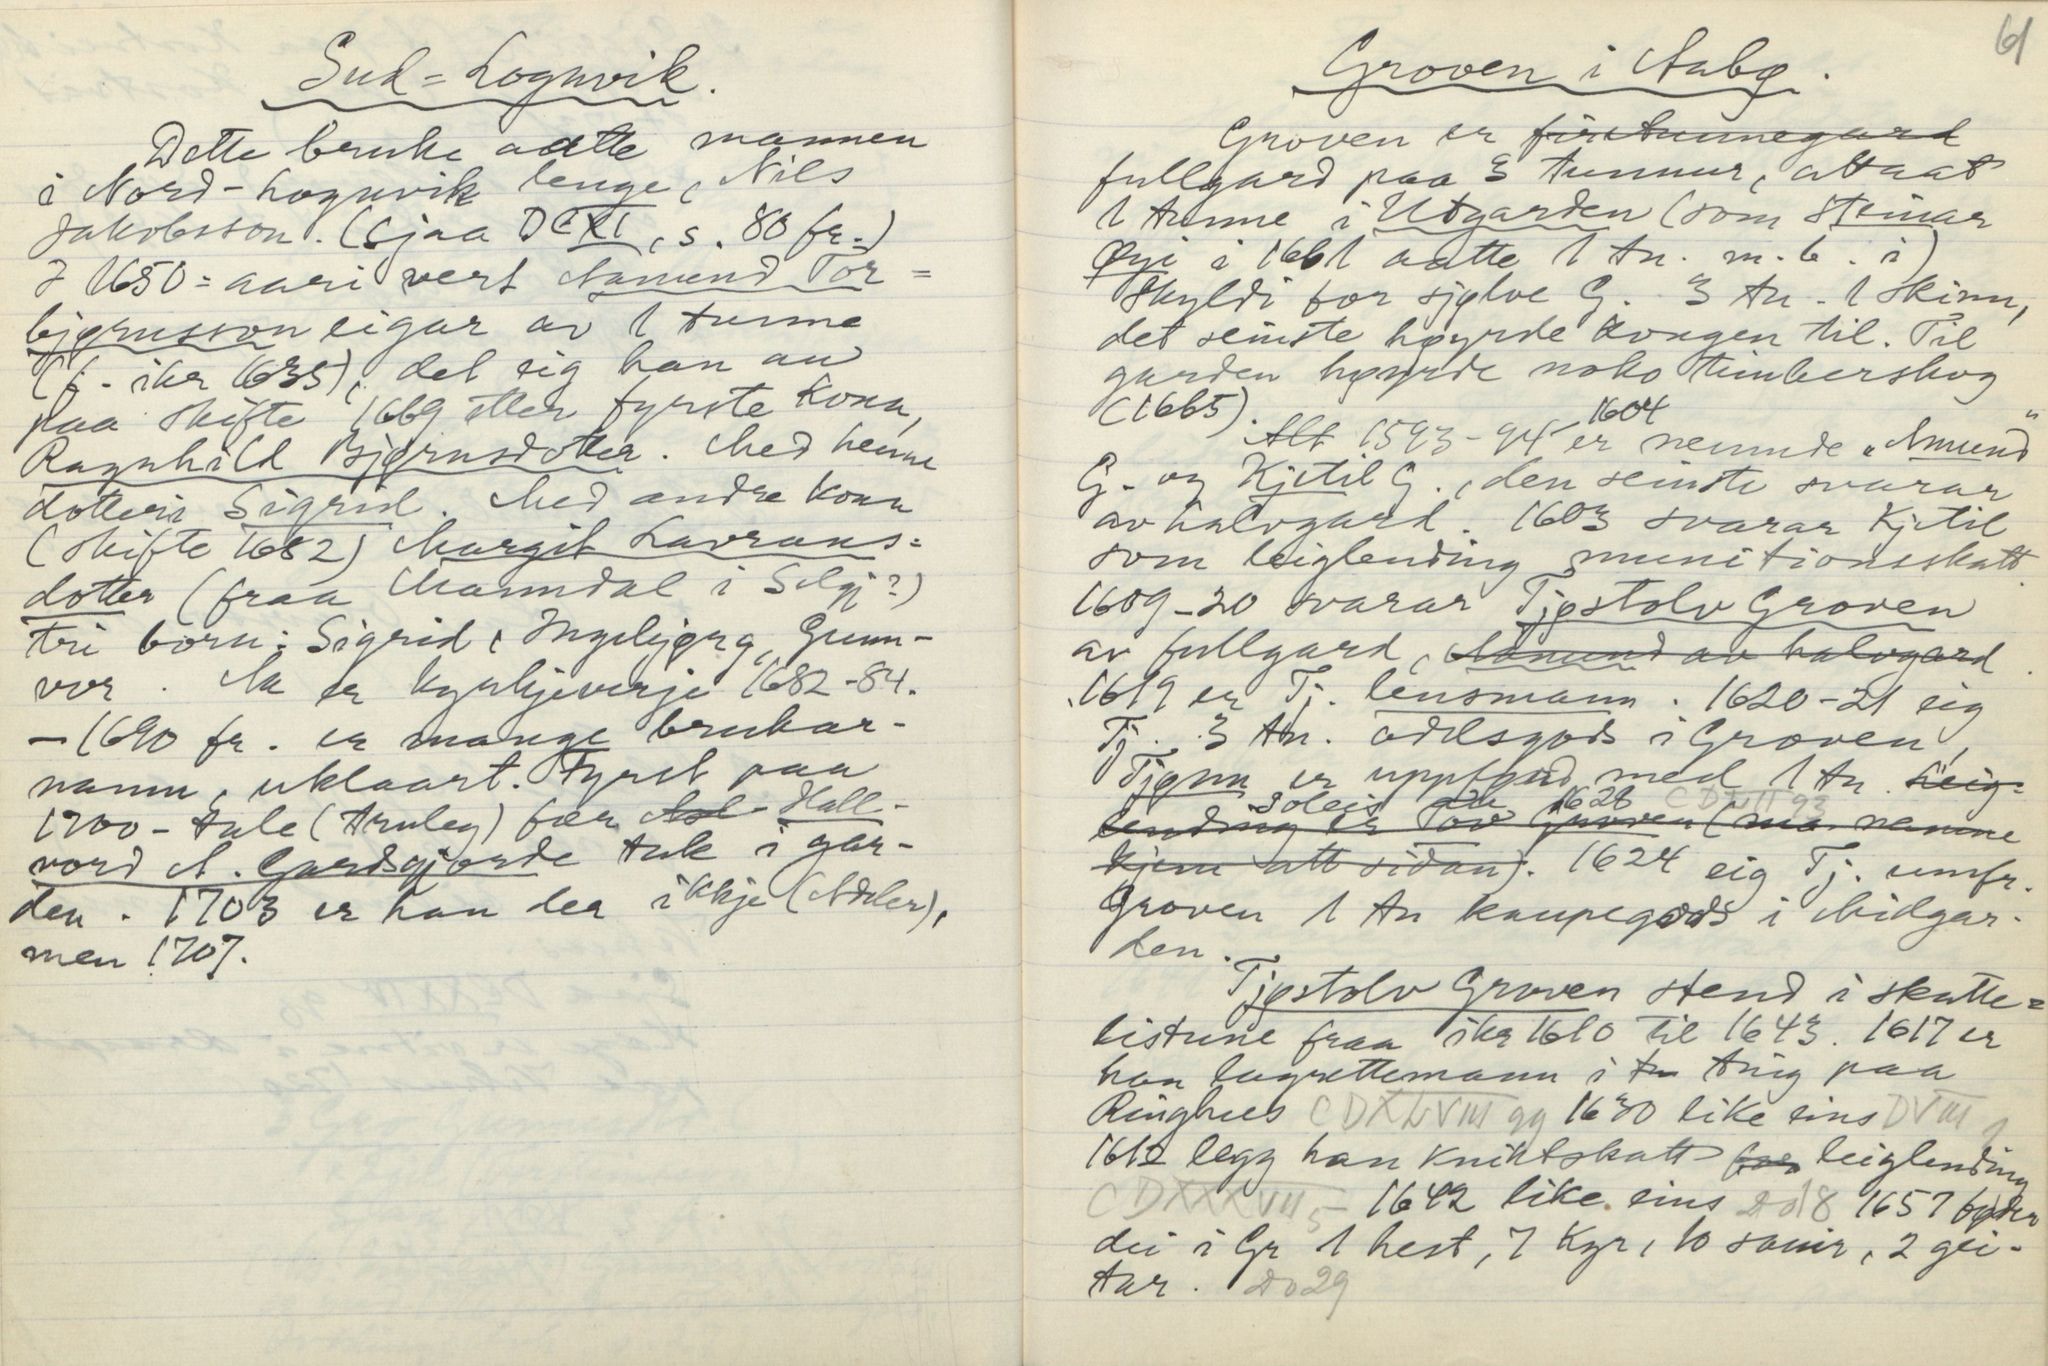 Sud=Lognvik.
Dette bruke aatte mannen
i Nord-Lognvik lenge, Nils
Jakobsson. (Sjaa DCXI, s. 80 fr.)
I 1650=aari vert Aamund Tor=
bjørnsson eigar av 1 tunne
(f. ikr 1635), det eig han au
paa skifte 1669 etter fyrste kona,
Ragnhild Bjørnsdotter. Med henne
dotteri Sigrid. Med andre kona
(skifte 1682) Margit Lavrans=
dotter (fraa Manndal i Selgj?)
tri born: Sigrid, Ingebjørg, Gunn-
vor. Aa er kyrkjeverje 1682-84.
- 1690 fr. er mange brukar-
namn, uklaart. Fyrst paa
1700-tale (Arnleg) fær Asl Hall-
vord A. Gardsgjorde tak i gar-
den. 1703 er han der ikkje (Adeler),
men 1707.
61
Groven i Aabø.
Groven er firetunnegard
fullgard paa 3 tunnur, attaat
1 tunne i Utgarden (som Steinar
Øyi i 1661 aatte 1 tn. m.b. i)
Skyldi for sjølve G. 3 tn. 1 skinn,
det seinste høyrde kongen til. Til
garden høyrde noko timberskog
(1665).
1604
Alt 1593-94 er nemnde "Amund"
G. og Kjetil G., den seinste svarar
av halvgard. 1603 svarar Kjetil
som leiglending munitionsskatt.
1609-20 svarar Tjøstolv Groven
av fullgard, Aamund av halvgard.
1619 er Tj. lensmann. 1620-21 eig
Tj. 3 tn. odelsgods i Groven,
Tjønn er uppførd med 1 tn. Leig-
soleis 1628 CDXVII 93
lending er Tov Groven (ma namne
kjem att sidan). 1624 eig Tj. umfr.
Groven 1 tn kaupegods i Midgar-
den.
Tjøstolv Groven stend i skatte=
listune fraa ikr 1610 til 1643. 1617 er
han lagrettemann i tn ting paa
Ringhus CDXLVIII 99 1630 like eins DVIII
1612 legg han knihtskatt for leiglending
CDXXXVII 5 1642 like eins Do 18 1657 føder
dei i Gr 1 hest, 7 kyr, 10 sauir, 2 gei-
tar. Do 29